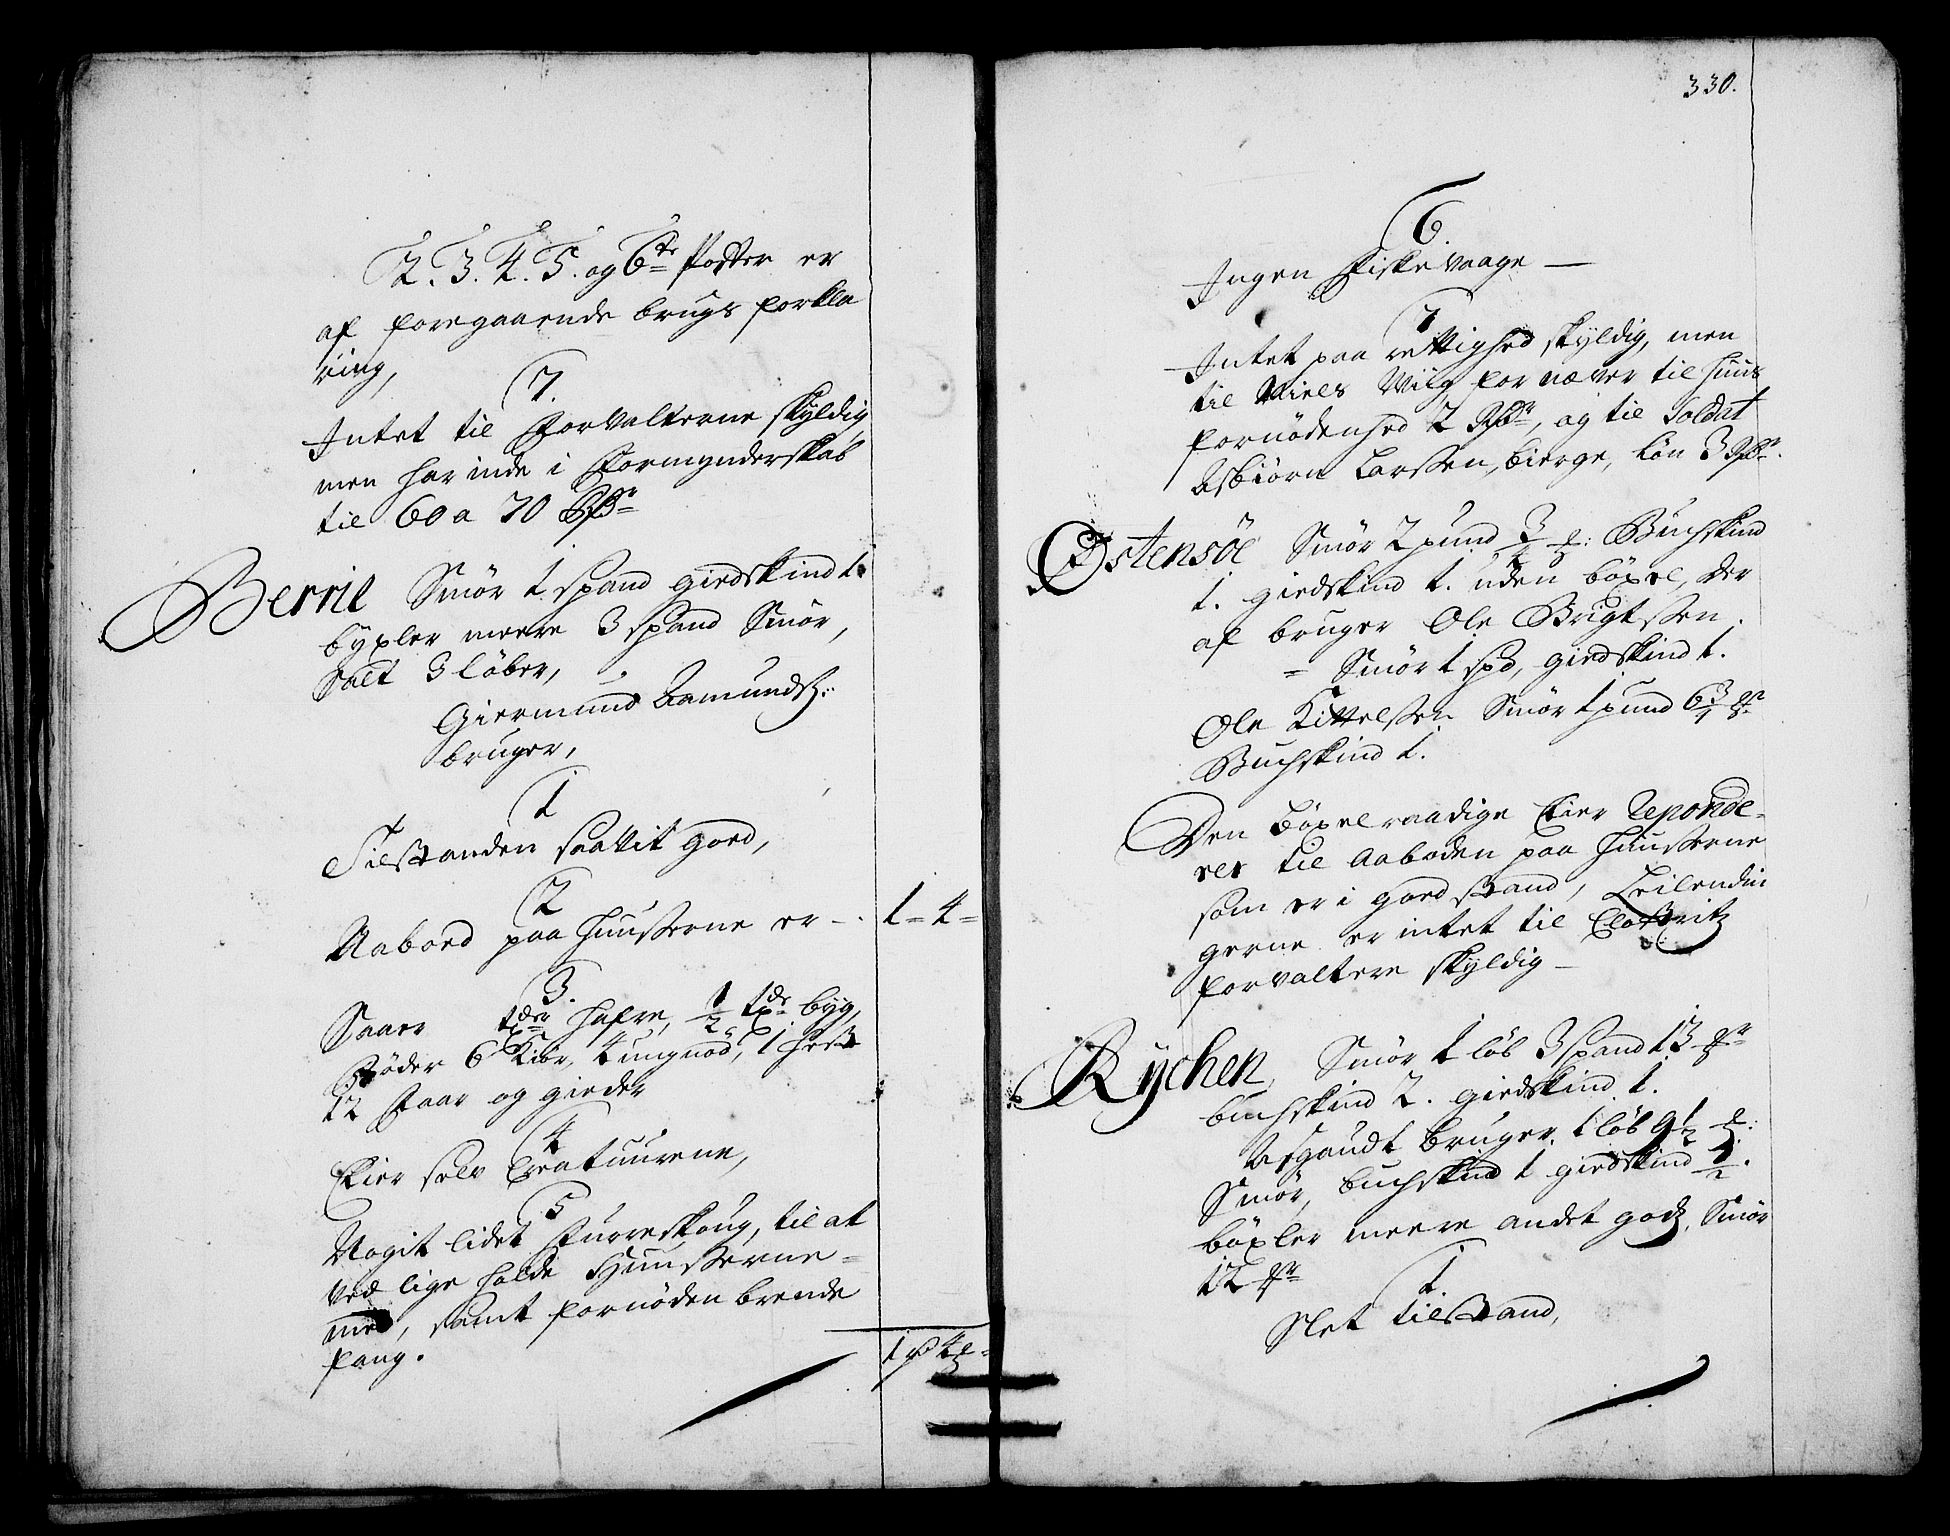 2. 3. 4. 5. og 6te Poster er
af foregaaende brugs forkla
ring,
7.
Intet til Forvalterne skyldig,
men har inde i Formynderskab
til 60 a 70 Rdr
Berrie Smør 1 spand giedskind 1.
byxler meere 3 spand Smør,
Salt 3 løber,
Giermund Aamunds:
bruger,
1
Tilstanden saavit goed,
2
Aaboed paa huusserne er - . 1 = 4 =
3.
Saaer tdr hafre, 1/2 tde byg,
Føder 6 Kiør, 4 ungnød, 1 hest
12 Faar og gieder
4
Eier selv Creatuurene,
5
Nogit lidet Furreskoug, til at
ved lige holde Huusserne
med, samt fornøden brende
fang.
330.
6.
Ingen Fiske vaage —
7
Intet paa rettighed skyldig, men
til Niels Wiig for næver til huus
fornødenhed 2 Rdr, og til Soldat
Asbiørn Larssen, bierge, løn 3 Rdr.
Østensøe Smør 2 pund 3/4 : Buchskind
1. giedskind 1. uden bøxel, der
af bruger Ole Brigtssen.
= Smør 1 spd, giedskind 1.
Ole Kittelssen Smør 1 pund 6 3/4
Buchskind 1.
Den bøxel raadige Eier Reponde-
rer til Aaboden paa huusserne
som er i goed stand, Leilendin
gerne er intet til Closteritz
forvaltere skyldig —
Rychen Smør 1 løb 3 spand 13
buchskind 2. giedskind 1.
Asgaudt bruger 1 løb 9 1/2
Smør, buchskind 1 giedskind 1/2.
bøxler meere andet godz, Smør
12
1.
Slet tilstand,